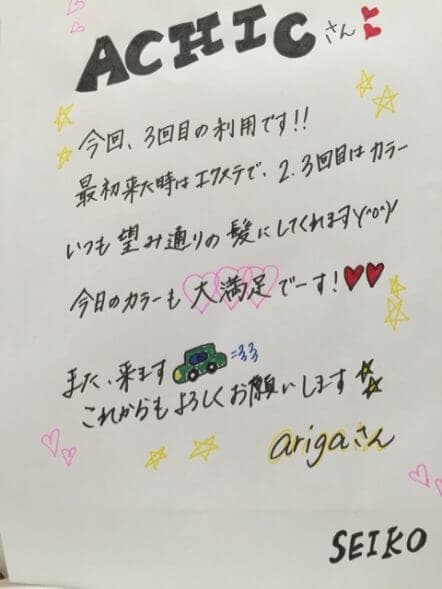 ACHICさん
今回、3回目の利用です!!
最初来た時はエクステで、2.3回目はカラー
いつも望み通りの髪にしてくれますY(^o^)Y
今日のカラーも大満足でーす!
また、来ます
これからもよろしくお願いします
arigaさん
SEIKO